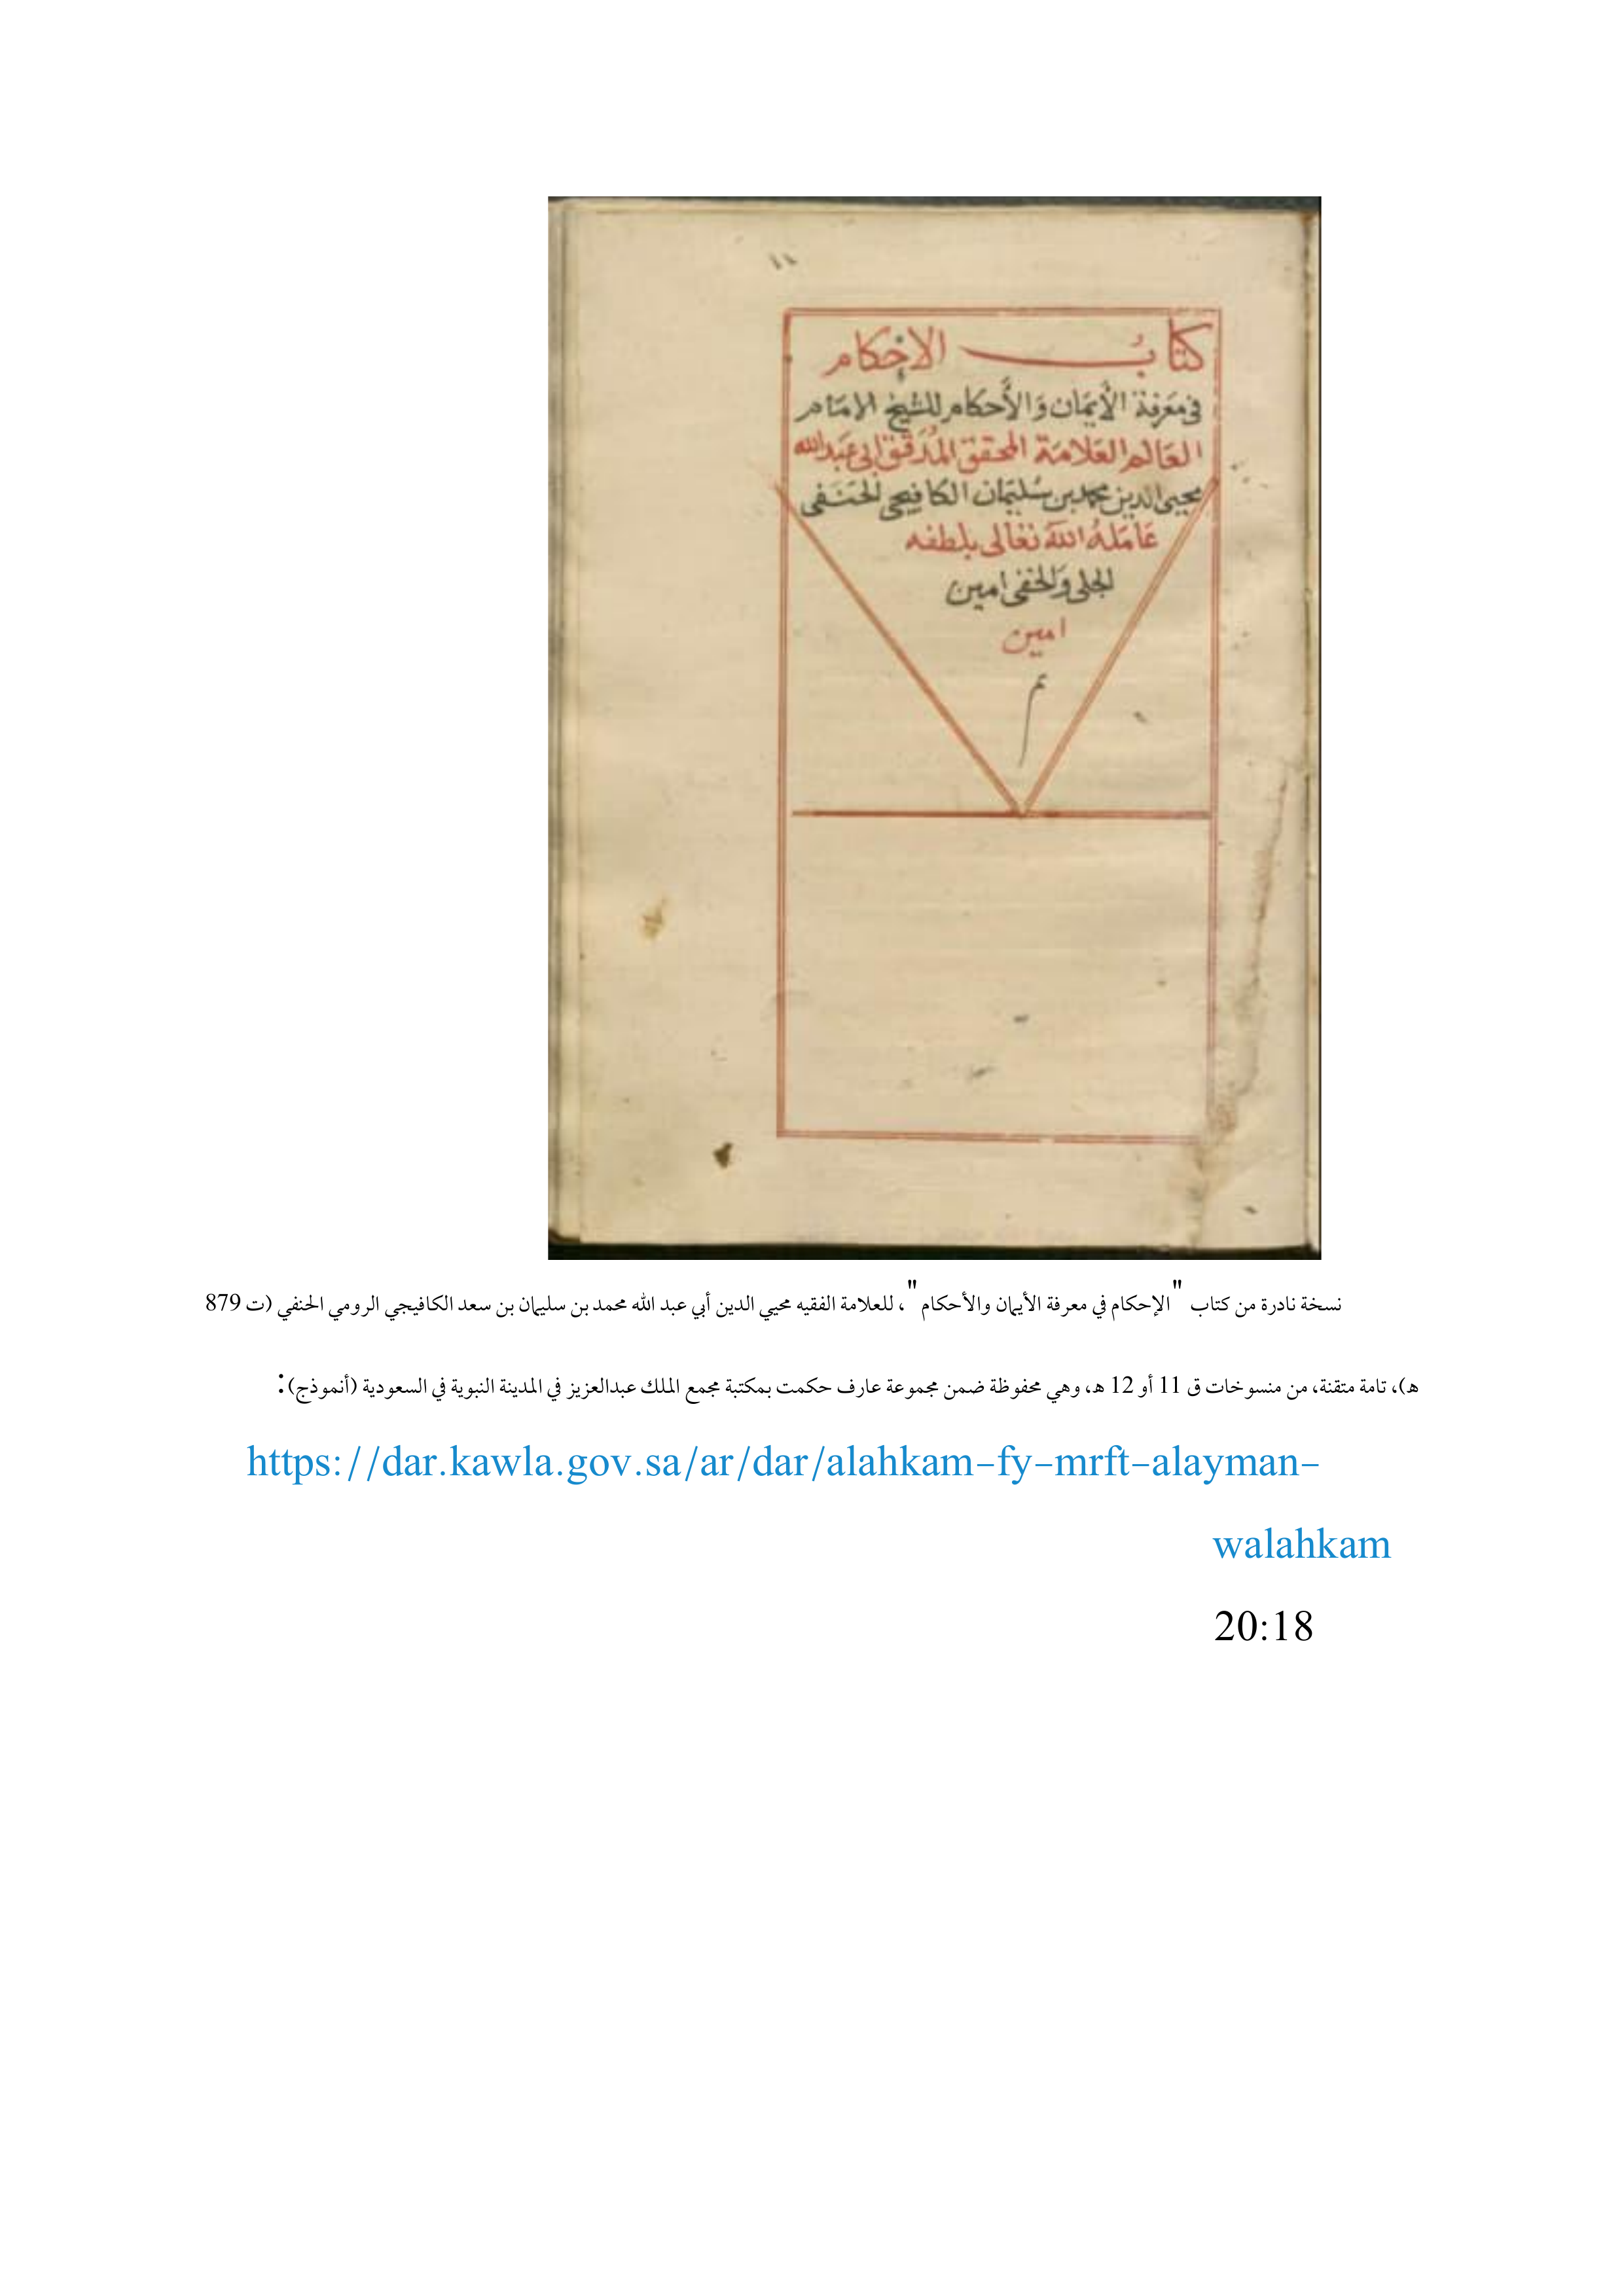 ١١
كتاب الإحكام
في معرفة الأيمان والأحكام للشيخ الامام
العالم العلامة المحقق المدقق ابي عبد الله
محيي الدين محمد بن سليمان الكافيجي الحنفي
عامله الله تعالى بلطفه
الجلي والخفي امين
امين
تم
نسخة نادرة من كتاب "الإحكام في معرفة الأيمان والأحكام"، للعلامة الفقيه محيي الدين أبي عبد الله محمد بن سليمان بن سعد الكافيجي الرومي الحنفي (ت 879
هـ)، تامة متقنة، من منسوخات ق 11 أو 12 هـ، وهي محفوظة ضمن مجموعة عارف حكمت بمكتبة مجمع الملك عبدالعزيز في المدينة النبوية في السعودية (أنموذج):
https://dar.kawla.gov.sa/ar/dar/alahkam-fy-mrft-alayman-
walahkam
20:18